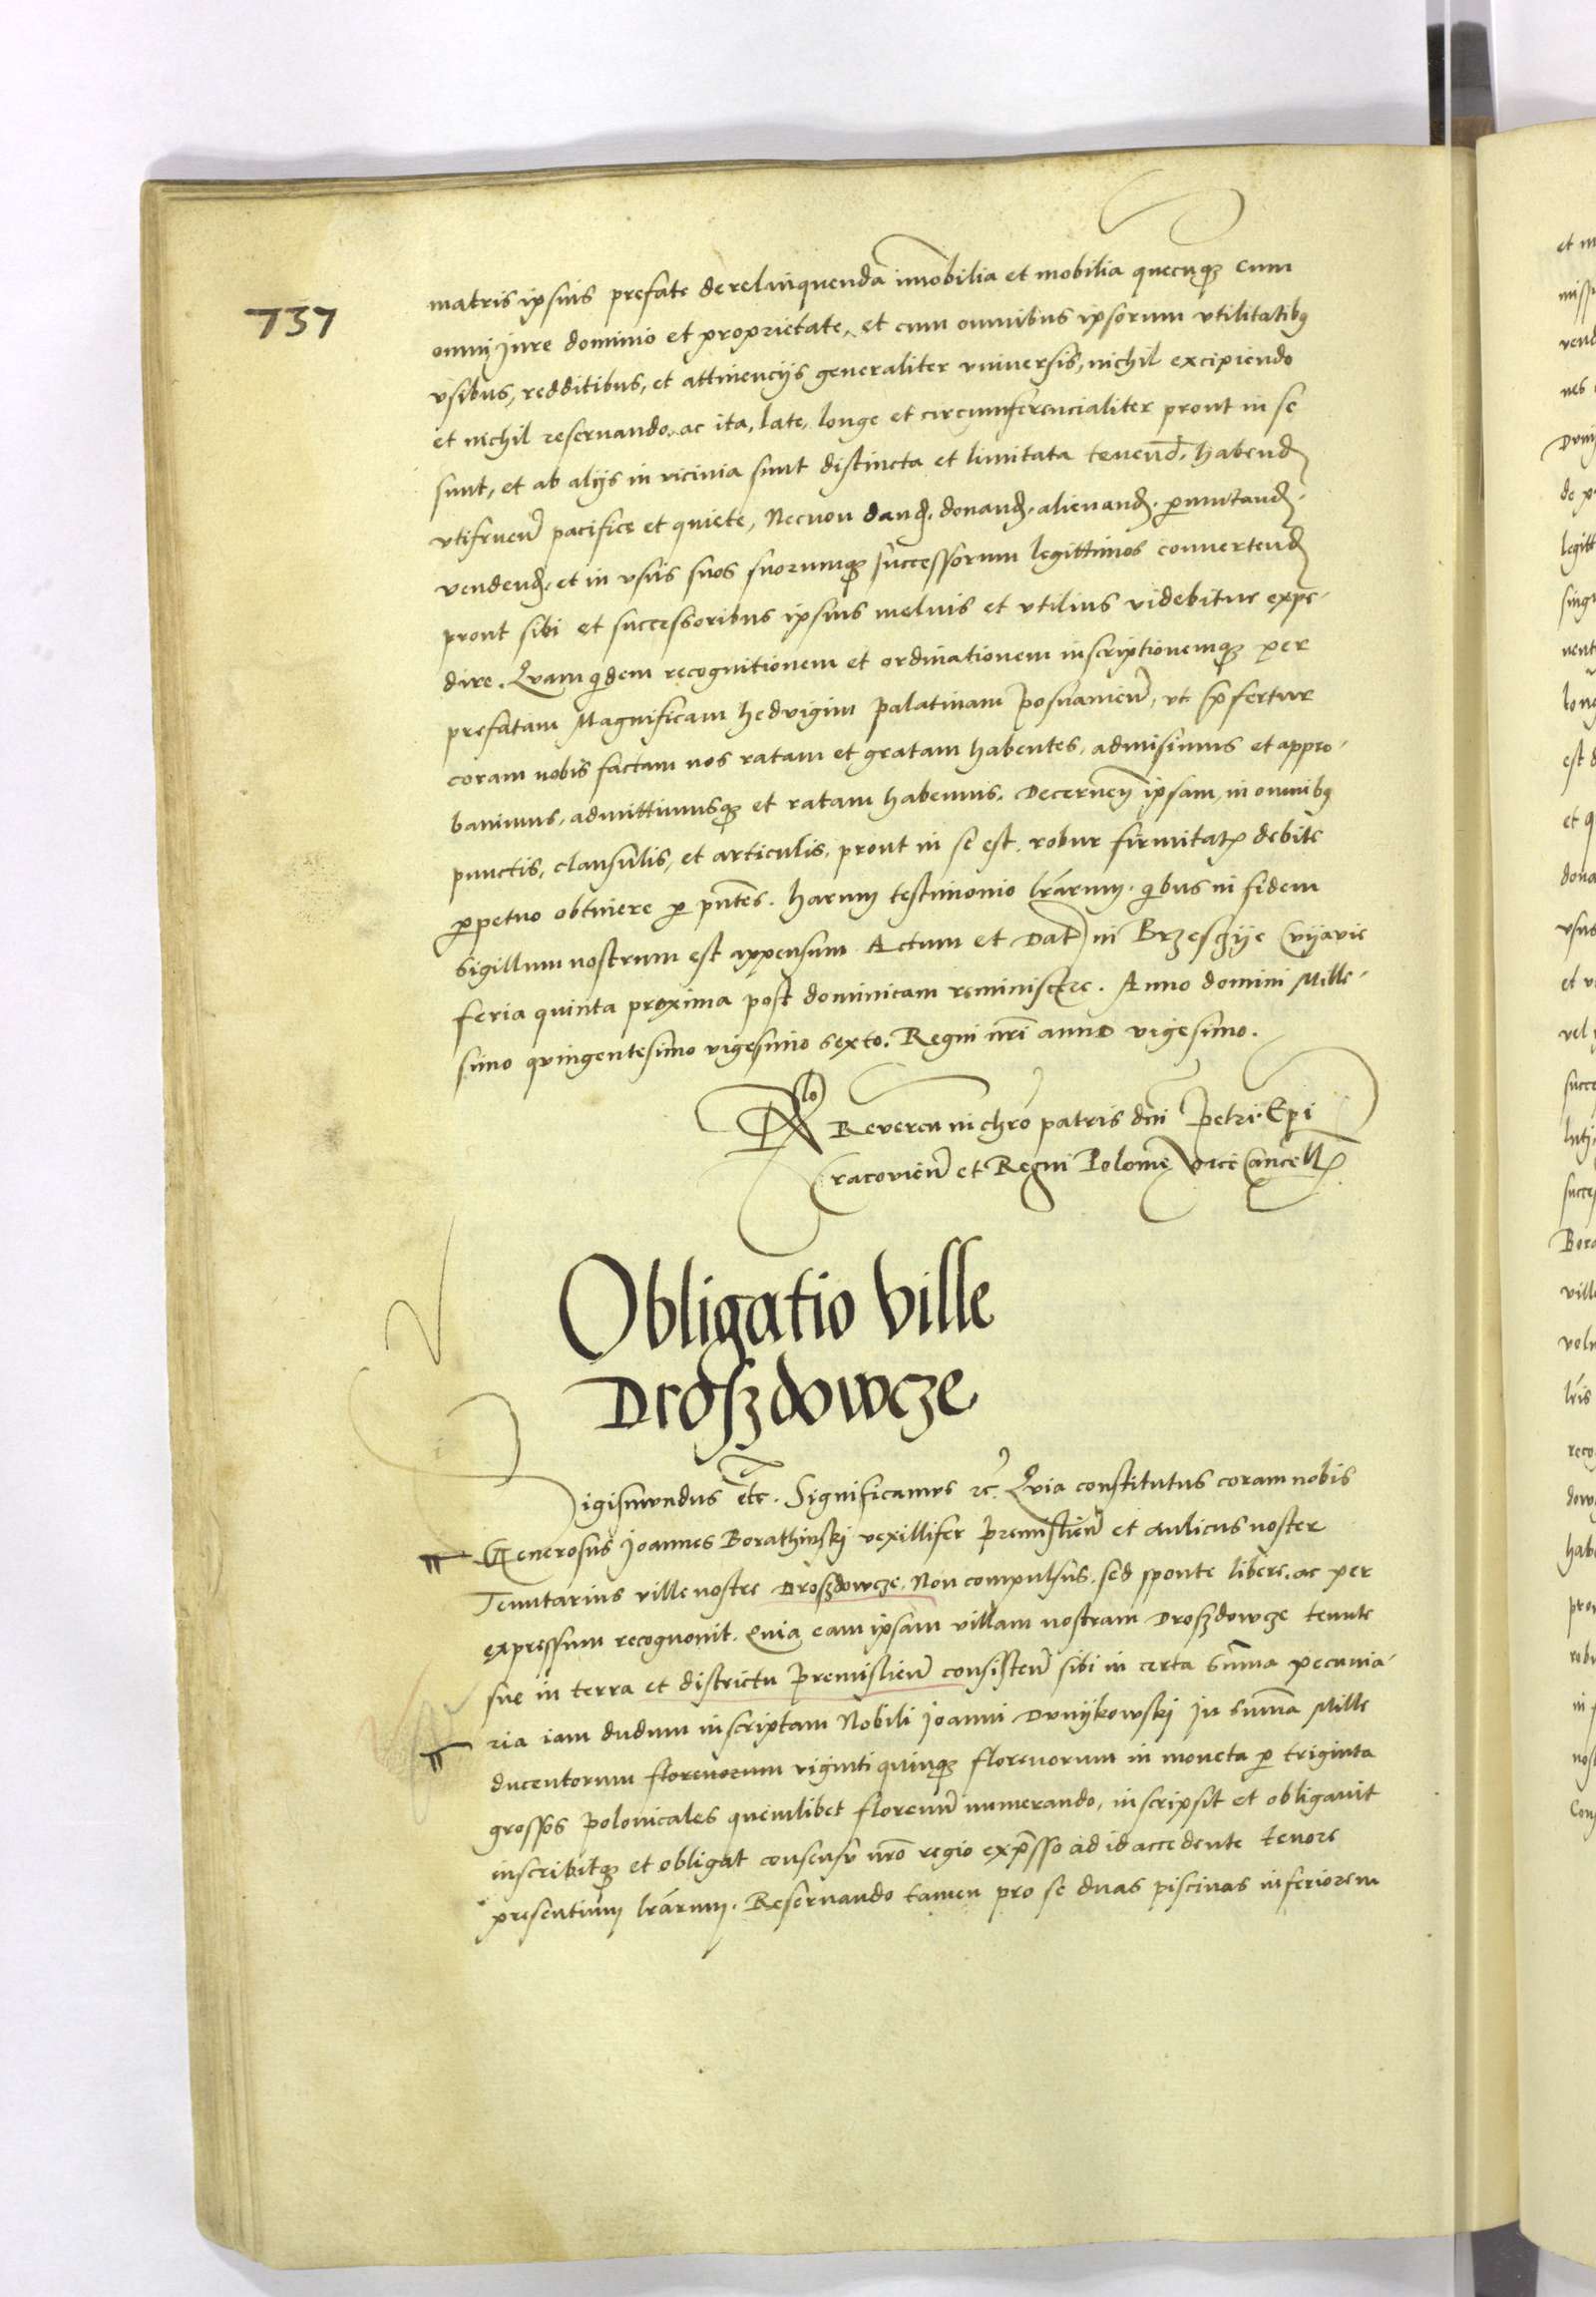 737
matris ipsius prefate derelinquenda imobilia et mobilia quecuqz cum
omni Jure dominio et proprietate, et cum omnibus ipsorum vtilitatibq
vsibus, redditibus, et attinencijs generaliter vniuersis, nichil excipiendo
et nichil reseruando, ac ita, late, longe et circumferencialiter prout in se
sunt, et ab alijs in vicinia sunt distincta et limitata tenend. habend
vtifruen pacifice et quiete, Necnon dand. donand. alienand. pmutand.
vendend. et in vsus suos suorumqz successorum legittimos conuertend
prout sibi et successoribus ipsius melius et vtilius videbitur expe-
dire. Quam qdem recognitionem et ordinationem inscriptionemqz per
prefatam Magnificam hedvigim palatinam posnanien, vt pfertur
coram nobis factam nos ratam et gratam habentes, admisimus et appro-
bauimus, admittimusqz et ratam habemus. Decernen ipsam in omnibq
punctis, clausulis, et articulis, prout in se est. robur firmitat debite
ppetuo obtinere p pntes. harum testimonio lrarum. qbus in fidem
sigillum nostrum est appensum Actum et Dat in Brzesczije Cvijavie
feria quinta proxima post dominicam reminiscere. Anno domini Mille-
simo quingentesimo vigesimo sexto. Regni nri anno vigesimo.
Rlo Reveren in chro patris dni Petri Epi
Cracovien et Regni Polonie vice Cancell
Obligatio ville
Droszdowcze
Sigismundus etc. Significamus etc. Quia constitutus coram nobis
Generosus Joannes Borathinskj vexillifer premislien et aulicus noster
Tenutarius ville nostre Droszdowcze, Non compulsus, sed sponte libere, ac per
expressum recognouit. Quia eam ipsam villam nostram Droszdowcze tenute
sue in terra et districtu premislien consisten sibi in certa suma pecunia-
ria iam dudum inscriptam Nobili Joanni Drnijkowski Jn suma Mille
ducentorum florenorum viginti quinqz florenorum in moneta p triginta
grossos polonicales quemlibet florenu numerando, inscripsit et obligauit
inscribitqz et obligat consensu nro regio expsso ad id accedente tenore
presentium lrarum. Reseruando tamen pro se duas piscinas inferiorem